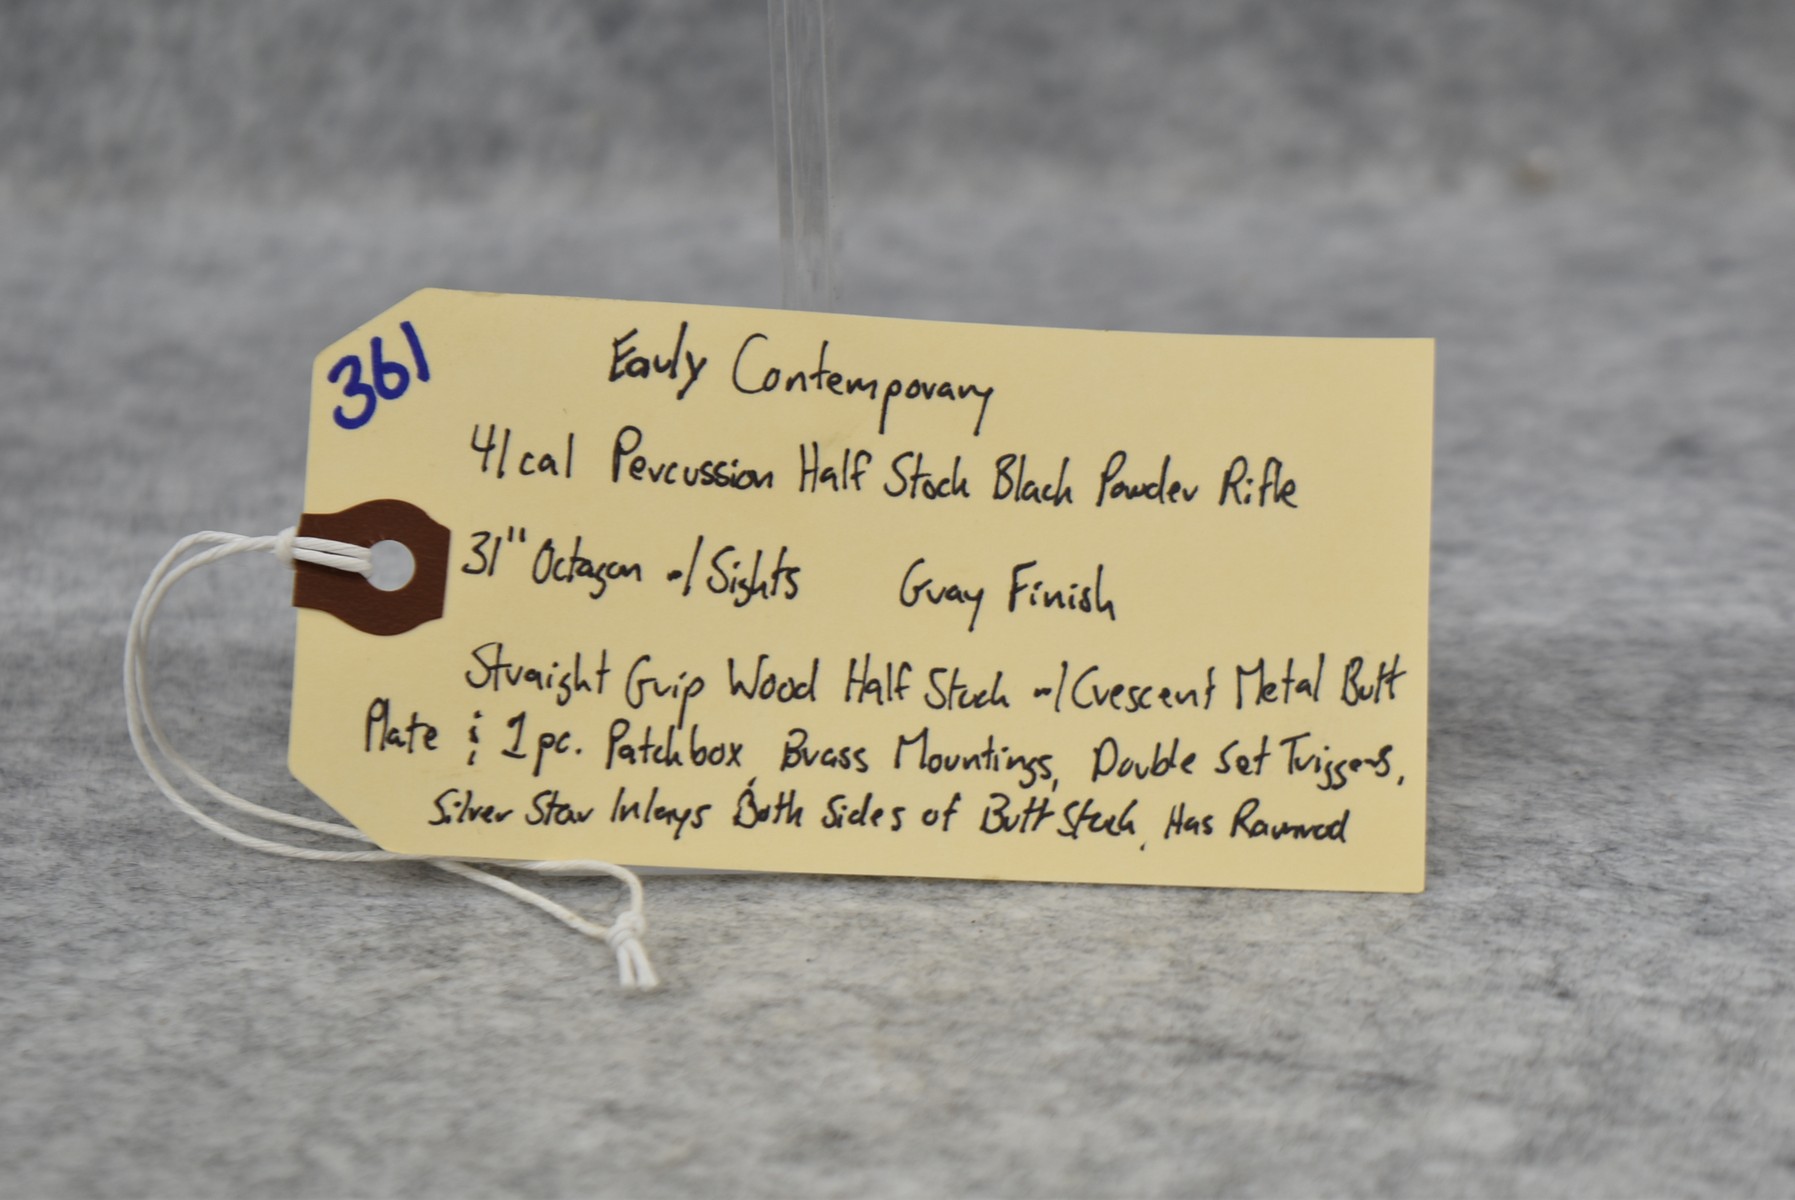 361
Early Contemporary
41 cal Percussion Half Stock Black Powder Rifle
31" Octagon w/ Sights Gray Finish
Straight Grip Wood Half Stock w/ Crescent Metal Butt
Plate & 1 pc. Patchbox, Brass Mountings, Double Set Triggers,
Silver Star Inlays Both Sides of Butt Stock, Has Ramrod